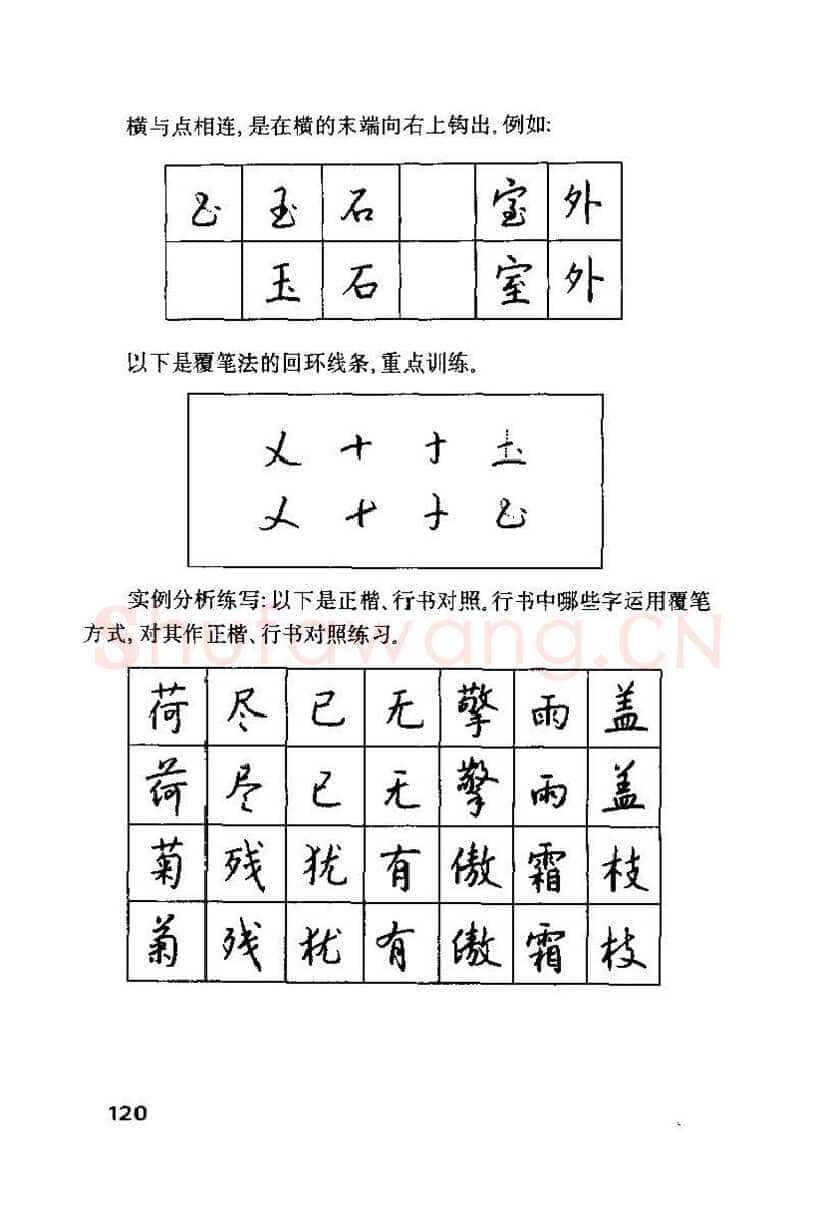 横与点相连,是在横的末端向右上钩出,例如:
玉 石 室 外
玉 石 室 外
以下是覆笔法的回环线条,重点训练。
乂 十 寸
乂 十 寸
实例分析练写:以下是正楷、行书对照。行书中哪些字运用覆笔
方式,对其作正楷、行书对照练习。
Shufawang.CN
荷 尽 已 无 擎 雨 盖
荷 尽 已 无 擎 雨 盖
菊 残 犹 有 傲 霜 枝
菊 残 犹 有 傲 霜 枝
120